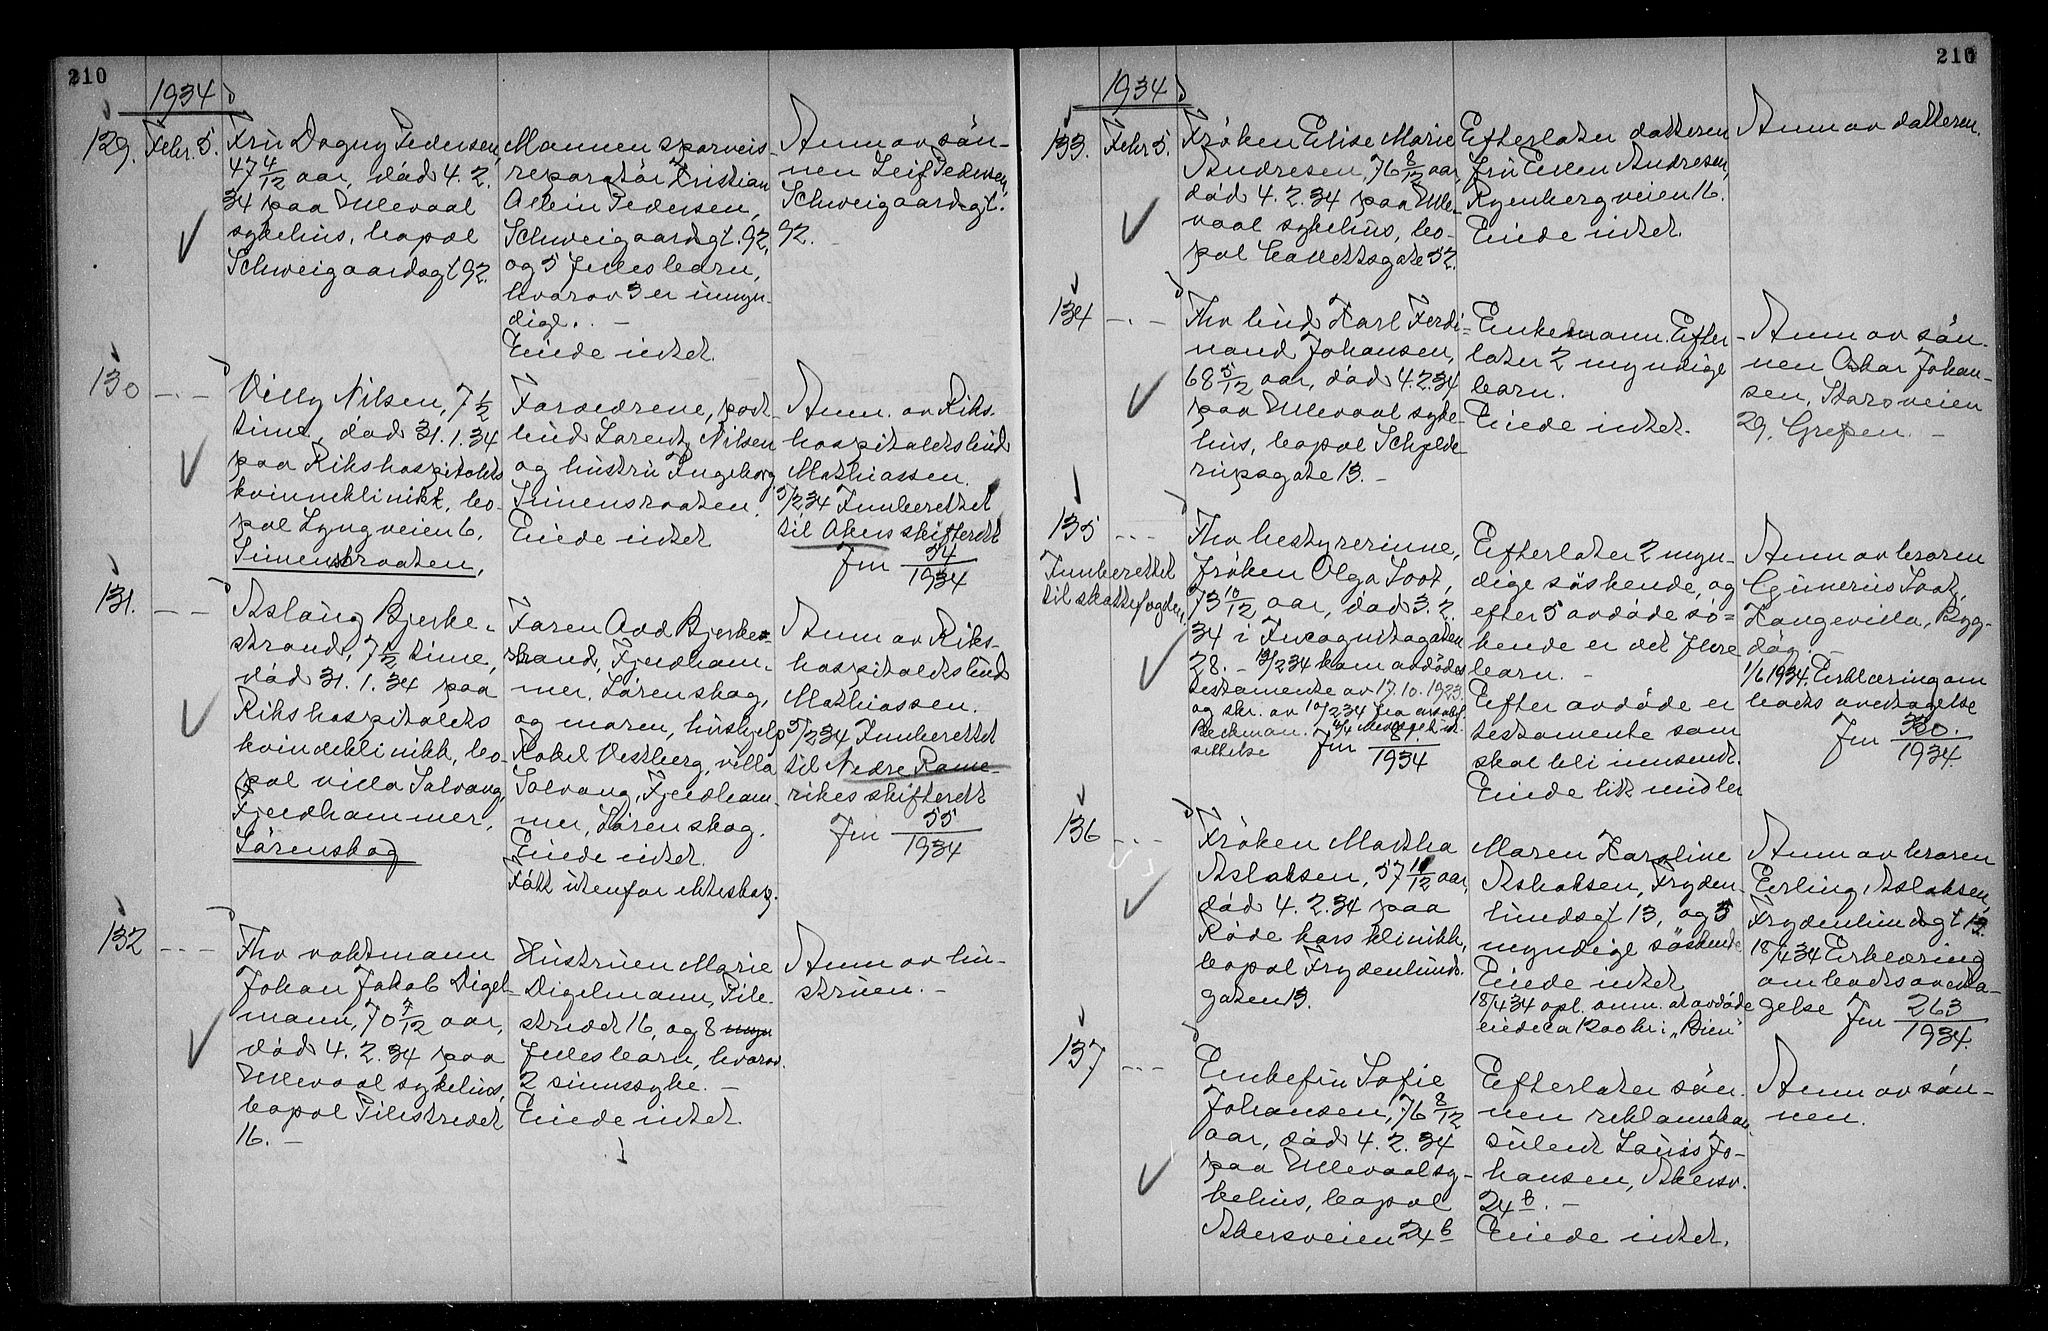 210
1934
129.
Febr. 5.
Fru Dagny Pedersen,
47 4/12 aar, død 4. 2.
34 paa Ullevaal
sykehus, bopæl
Schweigaardsgt 92.
Mannen sporveis-
reparatør Kristian
Albin Pedersen,
Schweigaardsgt. 92,
og 5 fellesbarn,
hvorav 3 er umyn-
dige. . –
Eiede intet.
Anm av søn-
nen Leif Pedersen,
Schweigaardsgt.
92.
130
- . -
Villy Nilsen, 7 1/2
time, død 31. 1. 34
paa Rikshospitalets
kvinneklinikk, bo-
pæl Lyngveien 6,
Simenstraaten,
Forældrene, post-
bud Lorentz Nilsen
og hustru Ingeborg,
Simenstraaten.
Eiede intet
Anm. av Riks-
hospitalets bud
Mathiassen.
5/2 34 Innberettet
til Akers skifterett
Jnr 54/1934
131.
- - -
Aslaug Bjerke-
strand, 7 1/2 time,
død 31. 1. 34 paa
Rikshospitalets
kvindeklinikk, bo-
pæl villa Solvang,
Fjeldhammer,
Lørenskog
Faren Odd Bjerke-
strand, Fjeldham-
mer, Lørenskog,
og moren, hushjelp
Rakel Vestberg, villa
Solvang, Fjeldham-
mer, Lørenskog.
Eiede intet.
Født utenfor ekteskap.
Anm av Riks-
hospitalets bud
Mathiassen.
5/2 34 Innberettet
til Nedre Rome-
rikes skifterett
Jnr 55/1934
132
- - -
Fhv vaktmann
Johan Jakob Digel-
mann, 70 7/12 aar,
død 4. 2. 34 paa
Ullevaal sykehus,
bopæl Pilestredet
16. –
Hustruen Marie
Digelmann, Pile-
stredet 16, og 8 myn
fellesbarn, hvorav
2 sinnssyke. –
Eiede intet.
Anm av hu-
struen. –
210
1934
133.
Febr 5.
Frøken Elise Marie
Andresen, 76 8/12 aar,
død 4. 2. 34 paa Ulle-
vaal sykehus, bo-
pæl Collettsgate 52.
Efterlater datteren
fru Ellen Andresen,
Ryenbergveien 16.
Eiede intet.
Anm av datteren.
134
- . -
Fhv bud Karl Ferdi-
nand Johansen,
68 5/12 aar, død 4. 2. 34
paa Ullevaal syke-
hus, bopæl Schjelde-
rupsgate 13. –
Enkemann. Efter-
later 2 myndige
barn.
Eiede intet.
Anm av søn-
nen Oskar Johan-
sen, Staroveien
29, Grefsen. –
135
- - -
Innberettet
til skattefogden.
Fhv bestyrerinne,
frøken Olga Soot,
73 10/12 aar, død 3. 2.
34 i Incognitogaten
28. – 14/2 34 kom avdødes
testamente av 17. 10. 1923
og skr. av 10/2 34 fra
Beckman.
settelse Jnr 81/1934
Efterlater 2 myn-
dige søskende, og
efter 5 avdøde sø-
skende er det flere
barn. –
Efter avdøde er
testamente som
skal bli innsendt.
Eiede litt midler
Anm av broren
Gunerius Soot,
Haugevilla, Byg-
døy. –
1/6 1934. Erklæring om
boets overtagelse
Jnr 330./1934.
136
- - -
Frøken Martha
Aslaksen, 57 11/12 aar,
død 4. 2. 34 paa
Røde kors klinikk,
bopæl Frydenlunds-
gaten 13.
Moren Karoline
Aslaksen, Fryden-
lundsgt 13, og 5
myndige søskende.
Eiede intet
18/4 34 opl. anm. at avdøde
eiede ca 1200 kr i „Bien"
Anm av broren
Erling Aslaksen,
Frydenlundsgt 13.
18/4 34 Erklæring
om boets overta-
gelse Jnr 263/1934.
137
- - -
Enkefru Sofie
Johansen, 76 8/12
aar, død 4. 2. 34
paa Ullevaal sy-
kehus, bopæl
Akersveien 24 b
Efterlater søn-
nen reklamekon-
sulent Lauiss Jo-
hansen, Akersv.
24 b. –
Eiede intet.
Anm av søn-
nen.